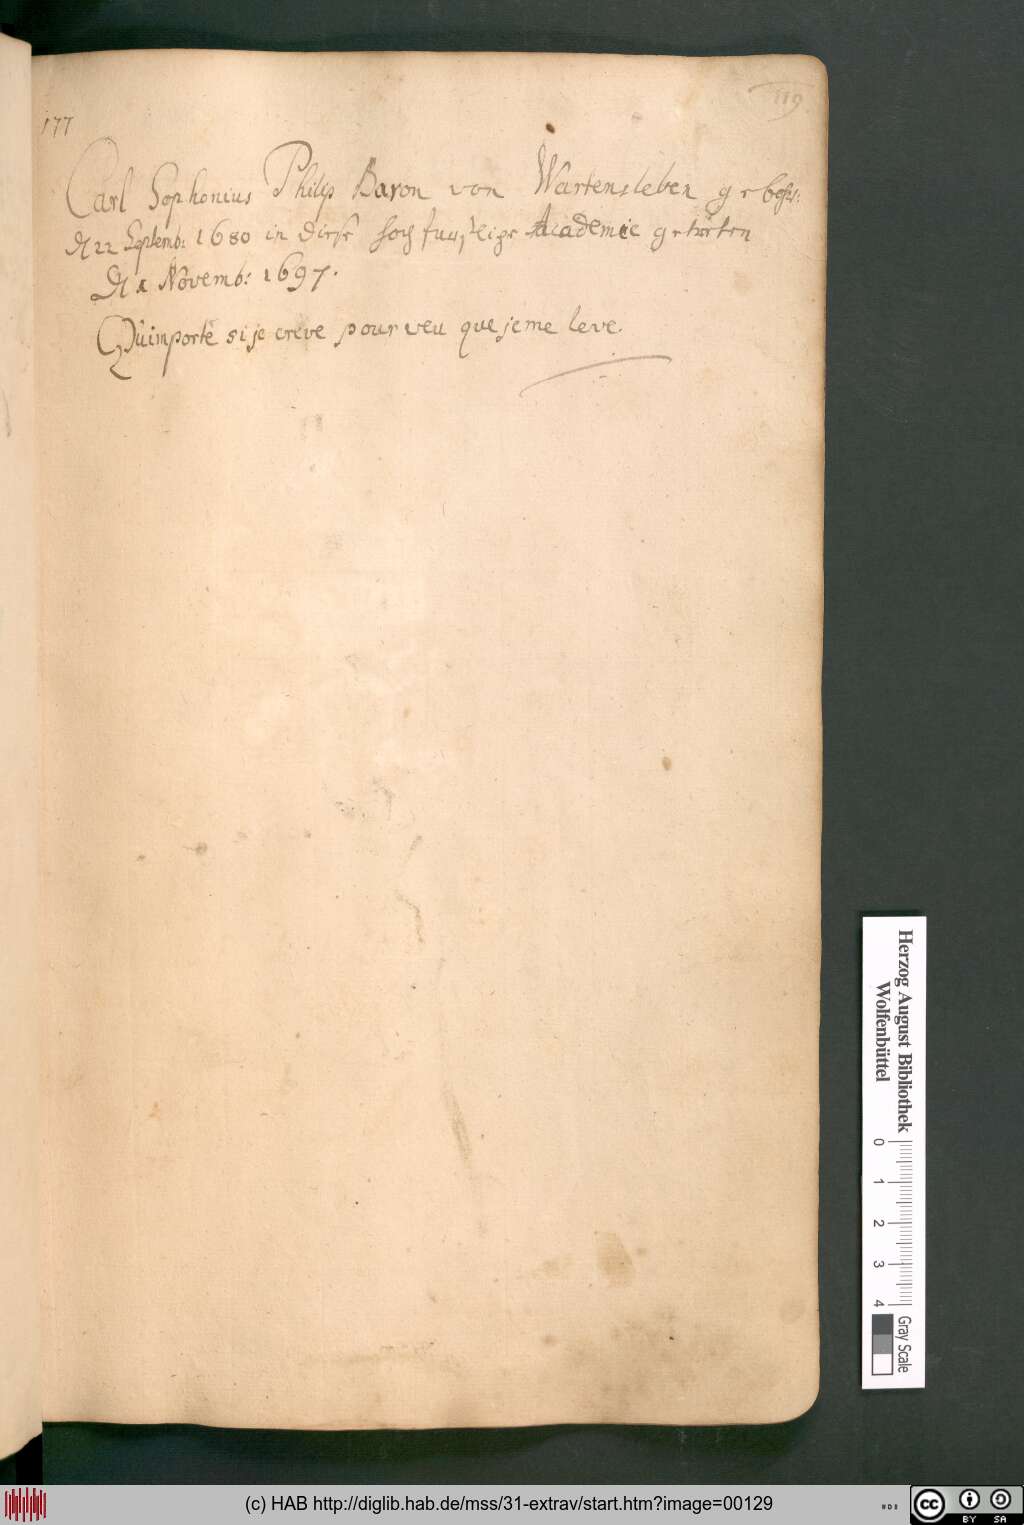 119
177
Carl Sophonius Philip Baron von Wartensleben gebohr:
Den 22 Septemb: 1680 in diese hochfurstlige Academie getretten
Den 1 Novemb: 1697.
Qu'importe si je creve pour veu que je me leve.
Herzog August Bibliothek
Wolfenbüttel
0 1 2 3 4
Gray Scale
(c) HAB http://diglib.hab.de/mss/31-extrav/start.htm?image=00129
cc BY SA